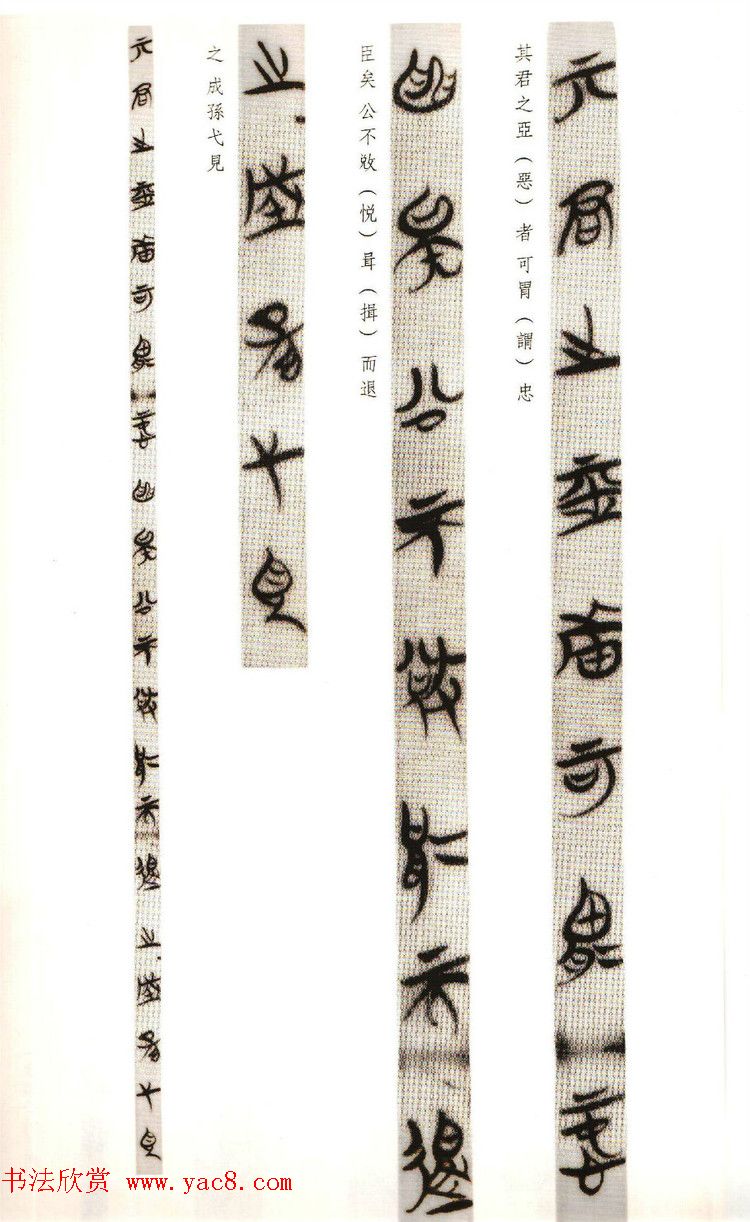 其君之亞（惡）者可胃（謂）忠
臣矣公不敚（悦）咠（揖）而退
之成孫弋見
书法欣赏 www.yac8.com